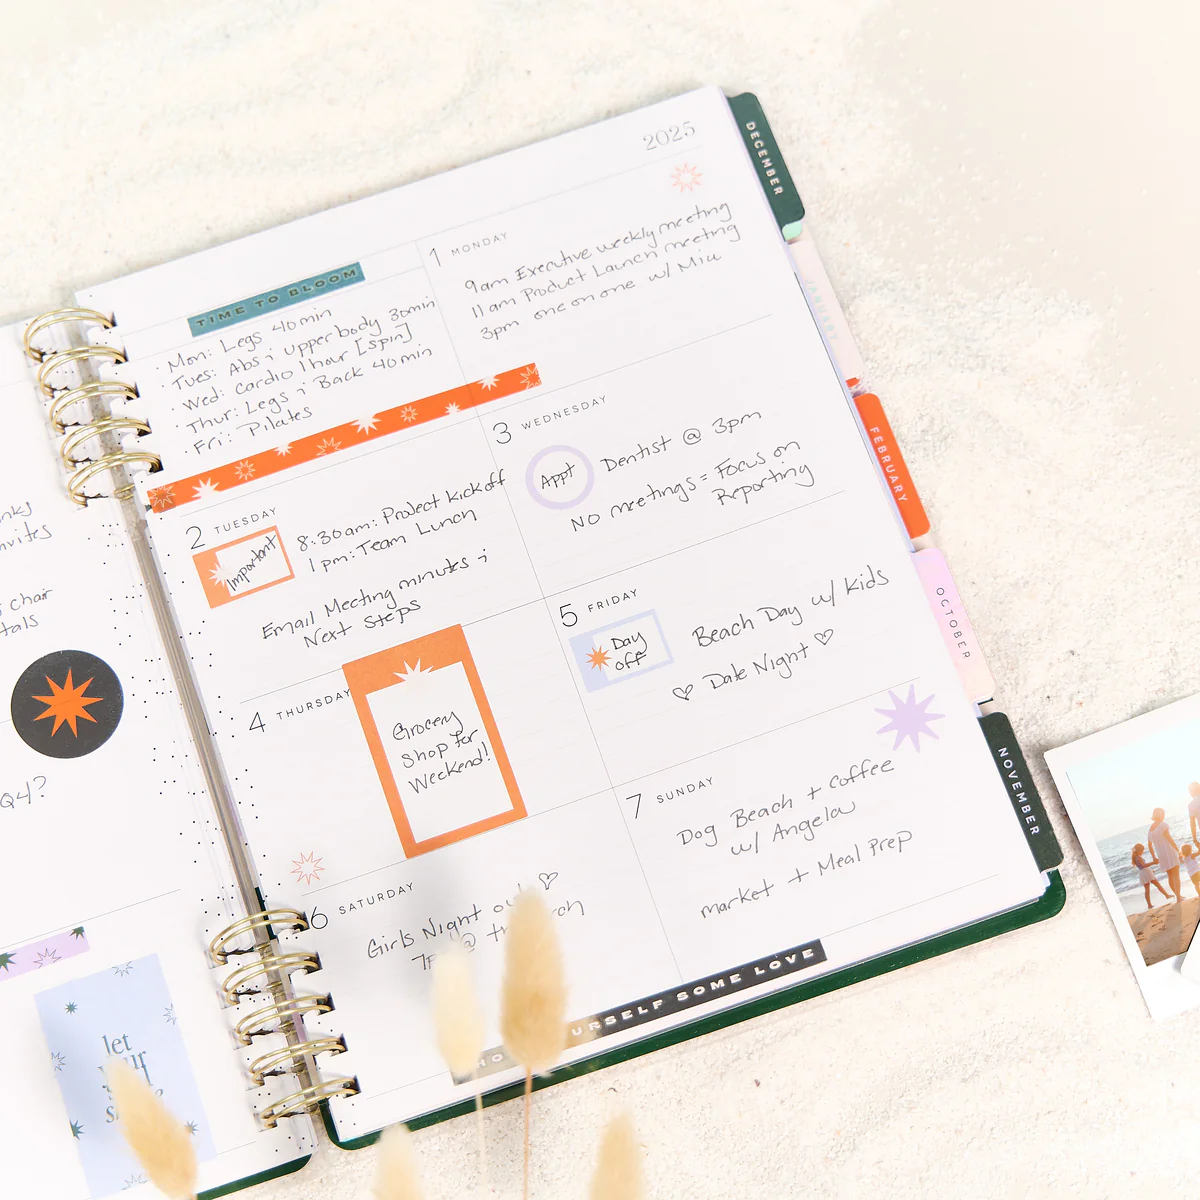 2025
TIME TO BLOOM
· Mon: Legs 40 min
· Tues: Abs & upper body 30min
· Wed: Cardio 1 hour [spin]
· Thur: Legs & Back 40 min
· Fri: Pilates
1 MONDAY
9am Executive weekly meeting
11am Product Launch meeting
3pm one on one w/ Mia
2 TUESDAY
Important
8:30am: Project Kickoff
1pm: Team Lunch
Email Meeting minutes &
Next Steps
3 WEDNESDAY
Appt
Dentist @ 3pm
No meetings = Focus on
Reporting
4 THURSDAY
Grocery
Shop for
Weekend!
5 FRIDAY
Day
off
Beach Day w/ Kids
♡ Date Night ♡
6 SATURDAY
Girls Night out ♡
@
7 SUNDAY
Dog Beach + Coffee
w/ Angela
market + Meal Prep
SOME LOVE
DECEMBER
FEBRUARY
OCTOBER
NOVEMBER
chair
Q4?
let